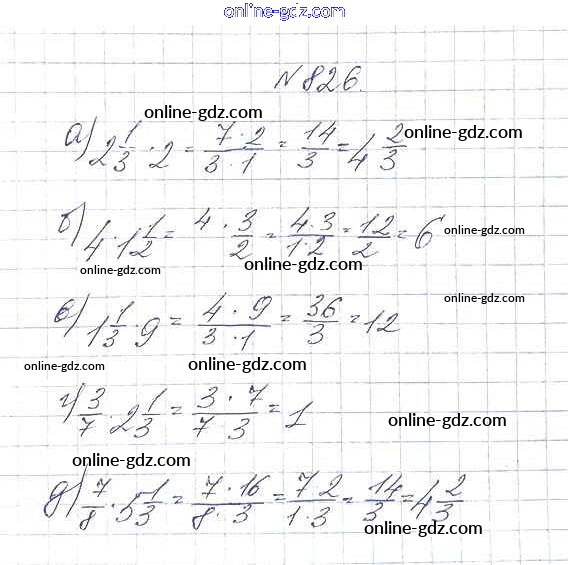 online-gdz.com
№826.
online-gdz.com
а) 2 1/3 · 2 = 7·2/3·1 = 14/3 = 4 2/3 online-gdz.com
б) 4 · 1 1/2 = 4 · 3/2 = 4·3/1·2 = 12/2 = 6 online-gdz.com
online-gdz.com online-gdz.com
online-gdz.com
в) 1 1/3 · 9 = 4 · 9/3 · 1 = 36/3 = 12
online-gdz.com online-gdz.com
г) 3/7 · 2 1/3 = 3 · 7/7 3 = 1 online-gdz.com
online-gdz.com
д) 7/8 · 5 1/3 = 7 · 16/8 · 3 = 7 2/1·3 = 14/3 = 4 2/3
online-gdz.com online-gdz.com